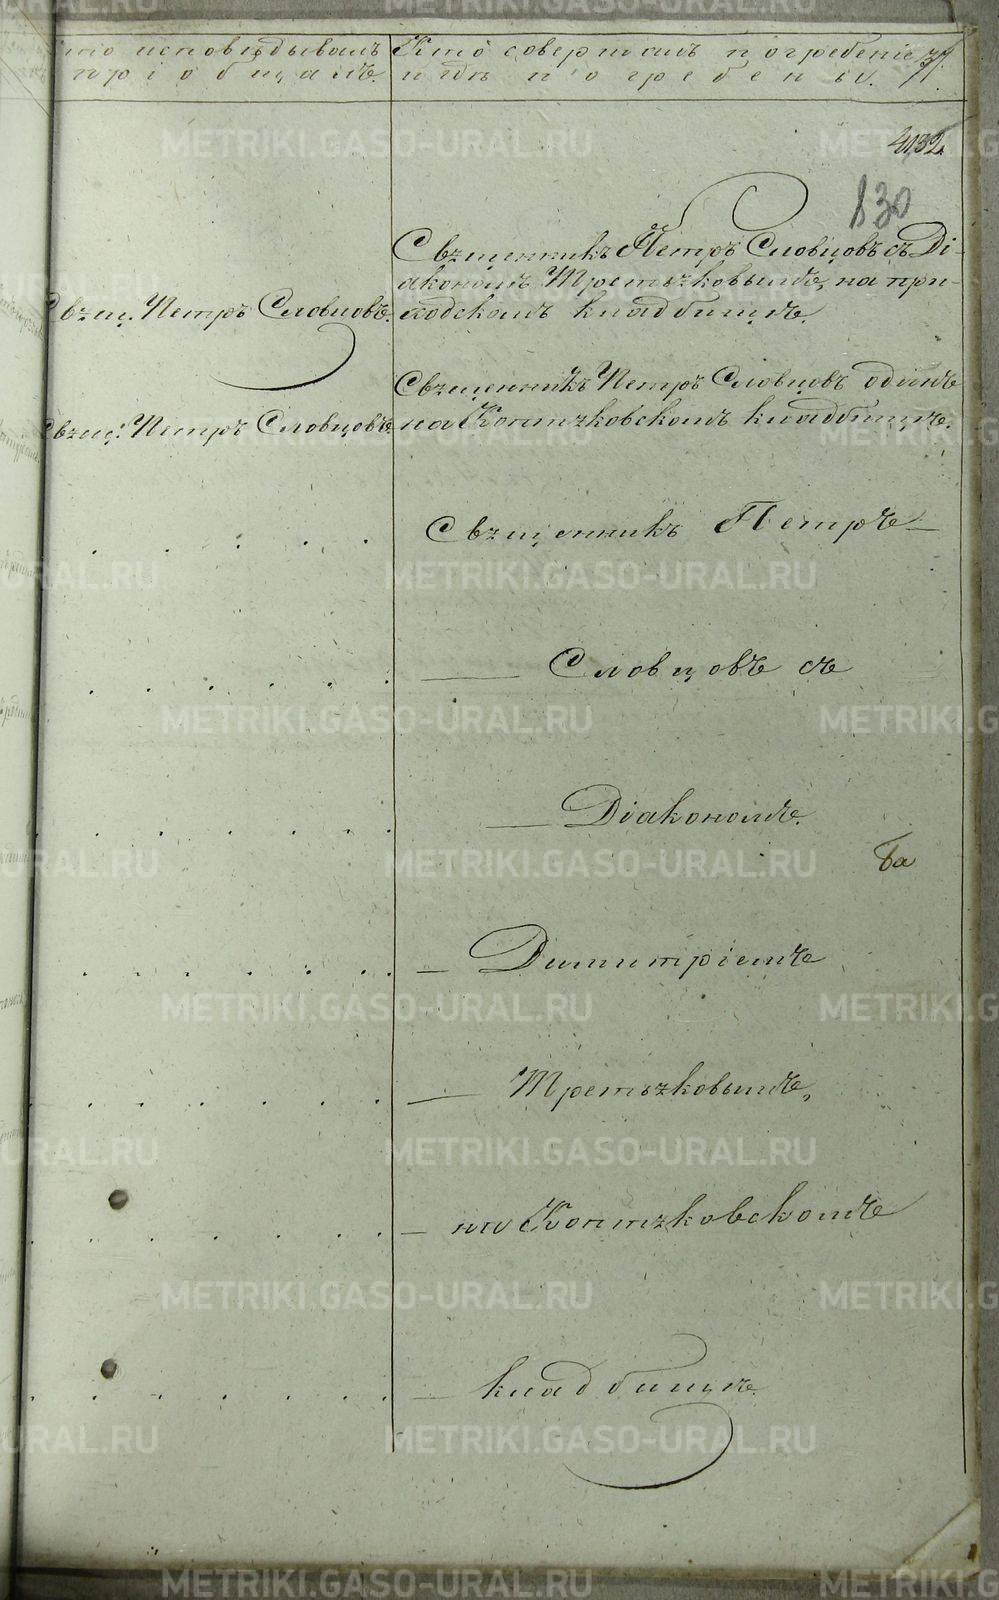 то исповѣдывалъ
пріобщалъ.
Кто совершалъ погребеніе
и гдѣ погребены.
4132.
830
Священникъ Петръ Словцовъ съ Ді-
акономъ Третьяковымъ, на при-
ходскомъ кладбищѣ.
Свящ. Петръ Словцовъ.
Священникъ Петръ Словцовъ одинъ
на Коптяковскомъ кладбищѣ.
Свящ. Петръ Словцовъ.
Священникъ Петръ
Словцовъ съ
Діакономъ
Димитріемъ
Третьяковымъ,
на Коптяковскомъ
кладбищѣ.
METRIKI.GASO-URAL.RU